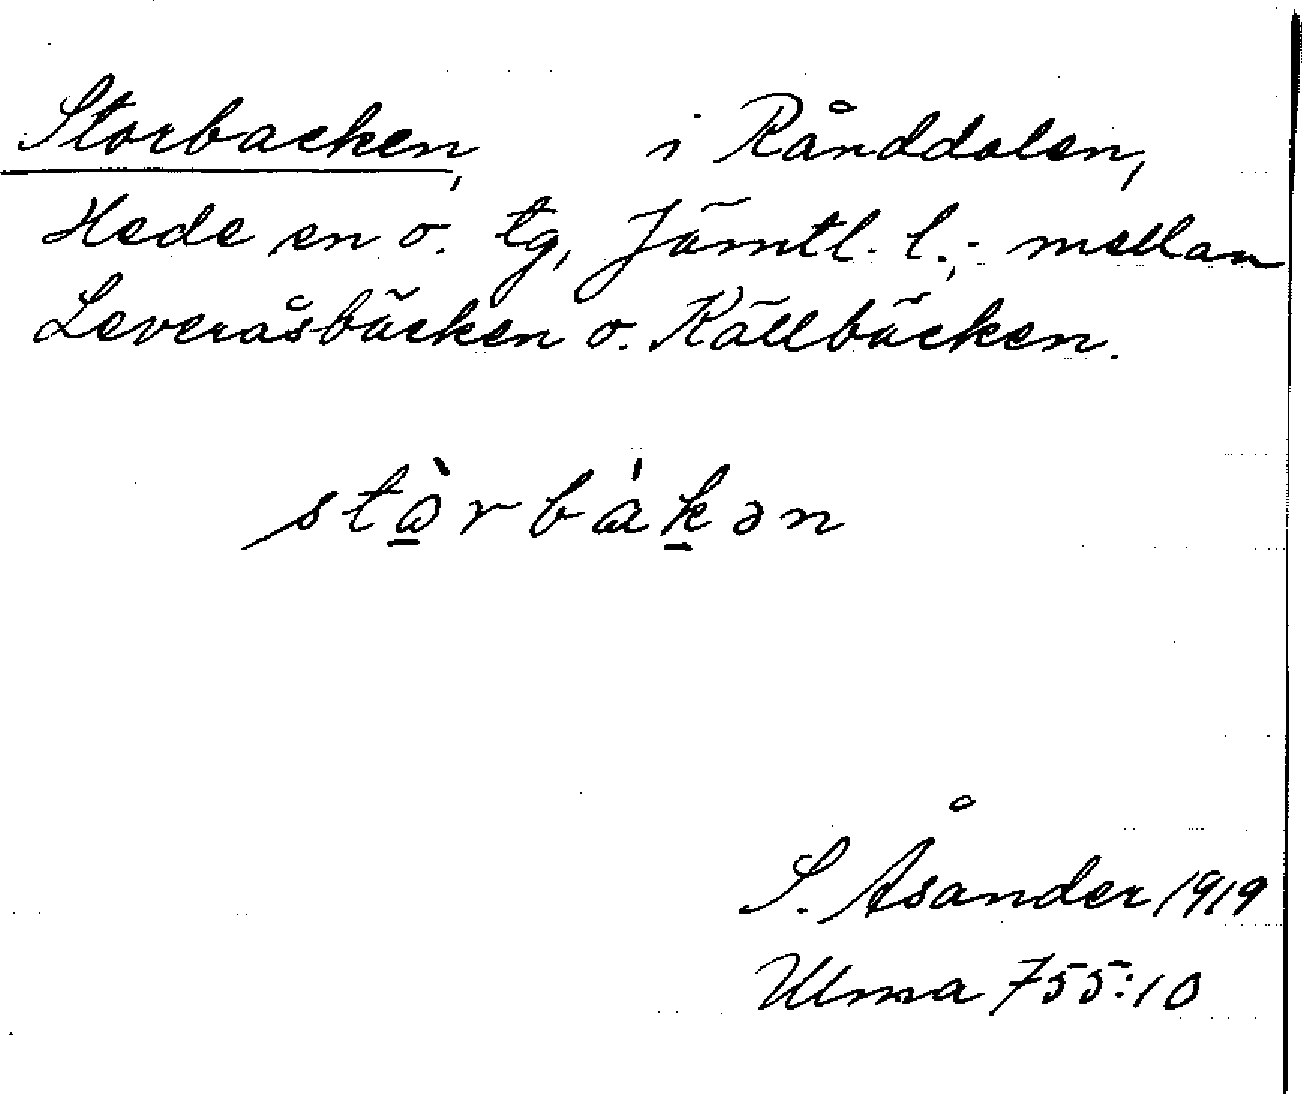 Storbacken, i Rånddalen,
Hede sn o. tg, Jämtl. l.; mellan
Leveråsbäcken o. Källbäcken.
stɷ̀rbákən
S. Åsander 1919
Ulma 755:10